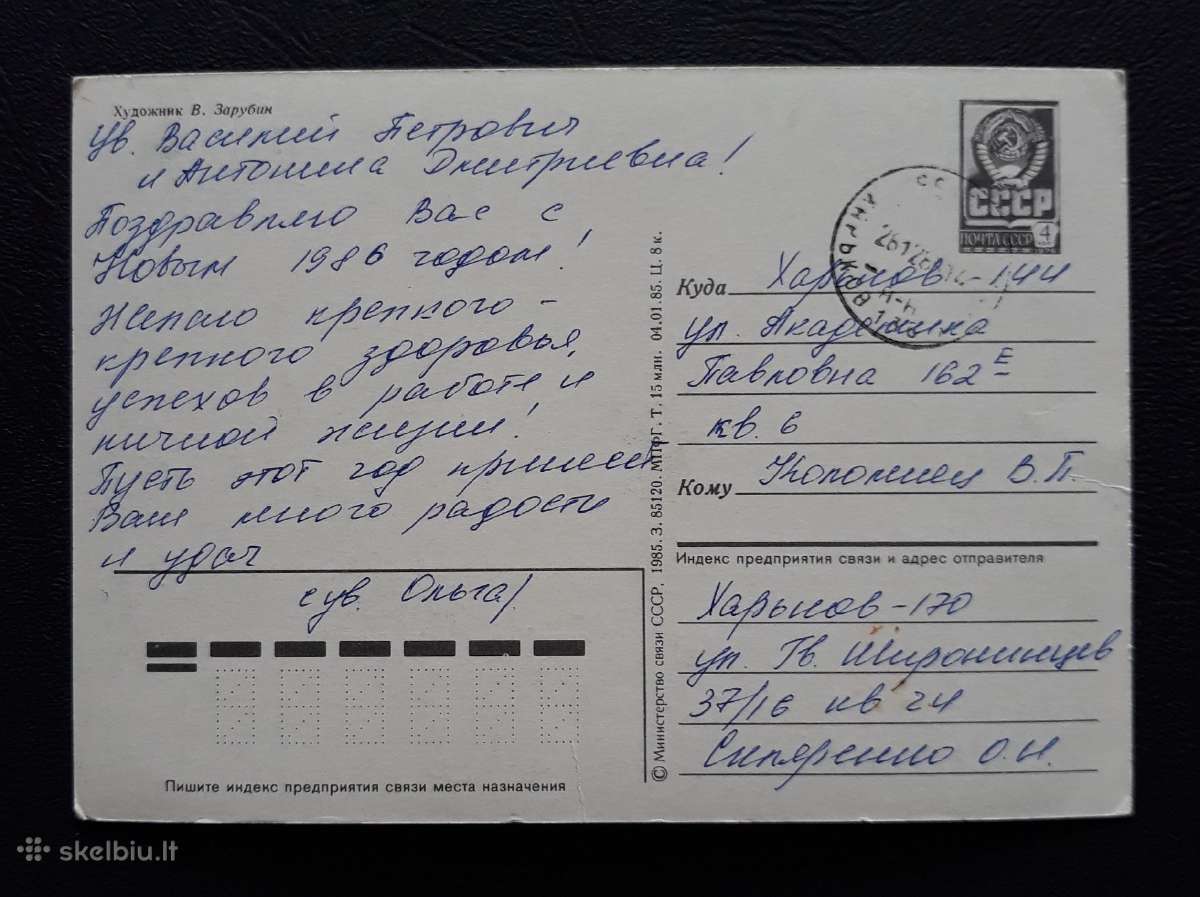 Художник В. Зарубин
Ув. Василий Петрович
и Антонина Дмитриевна!
Поздравляю Вас с
Новым 1986 годом!
Желаю крепкого-
крепкого здоровья,
успехов в работе и
личной жизни!
Пусть этот год принесет
Вам много радости
и удач
с ув. Ольга
Пишите индекс предприятия связи места назначения
© Министерство связи СССР, 1985. З. 85120. МПФГ. Т. 15 млн. 04.01.85. Ц. 8 к.
СССР
ПОЧТА СССР 4
Куда Харьков-144
ул. Академика
Павлова 162 Е
кв. 6
Кому Коломиец В.П.
Индекс предприятия связи и адрес отправителя
Харьков-170
ул. Гв. Широнинцев
37/16 кв 24
Скляренко О.Н.
skelbiu.lt